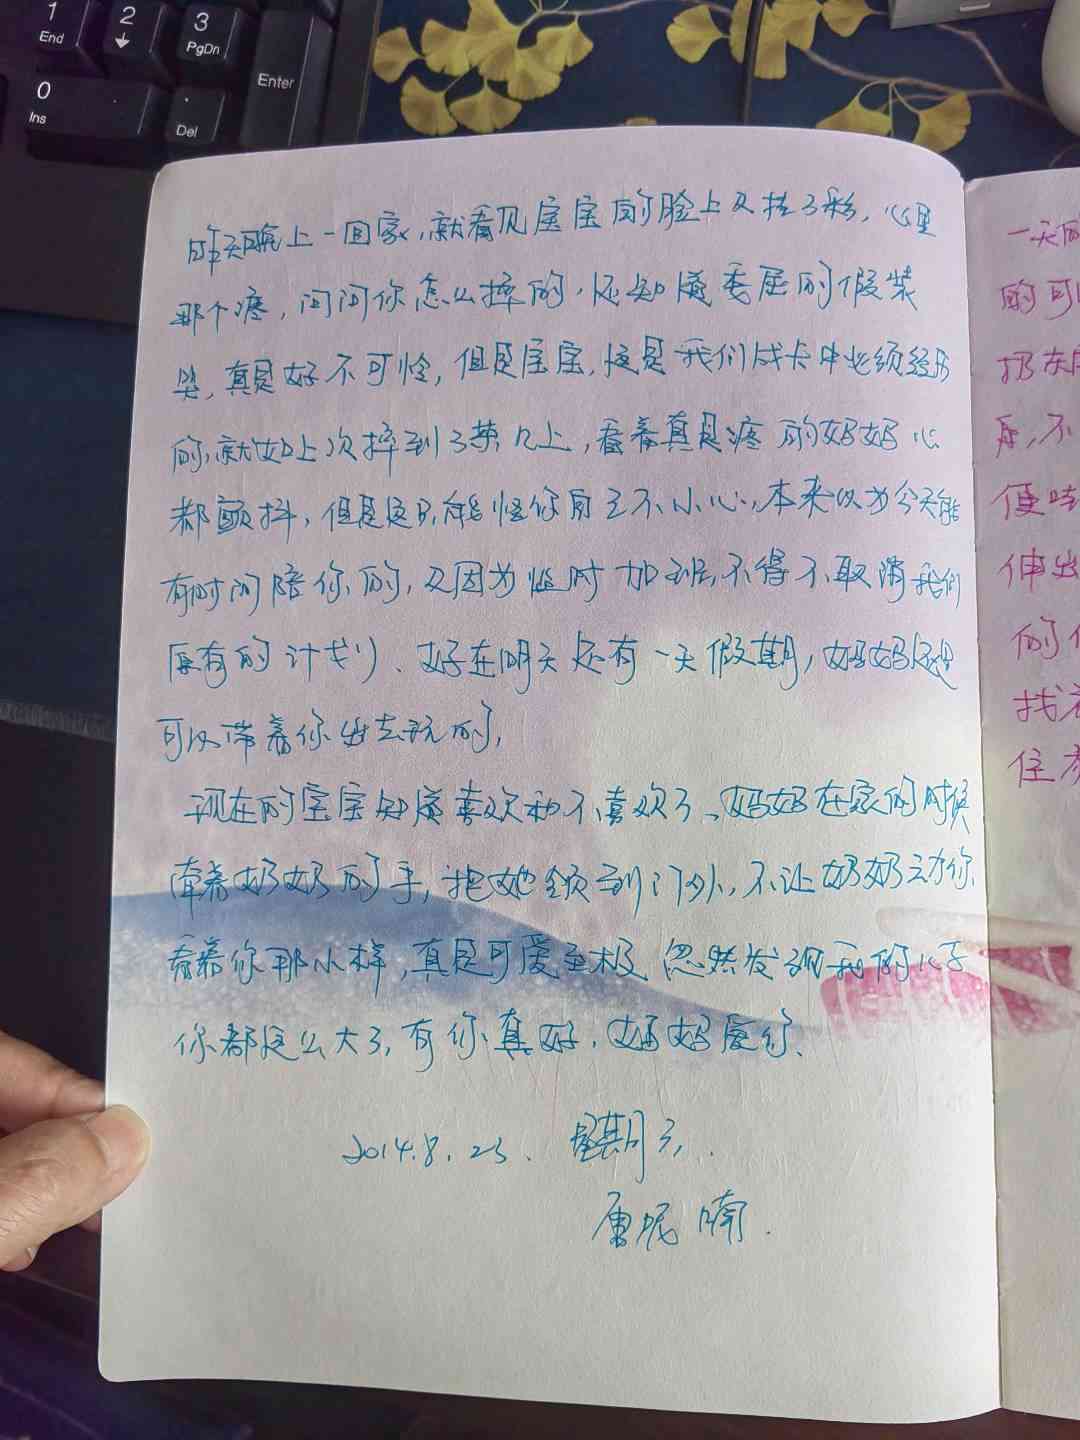 1
End
2
↓
3
PgDn
Enter
0
Ins
.
Del
昨天晚上一回家,就看见宝宝的脸上又挂了彩,心里
那个疼,问问你怎么摔的,还知道委屈的假装
哭,真是好不可怜,但是宝宝,这是我们成长中必须经历
的,就如上次摔到了茶几上,看着真是疼的妈妈心
都颤抖,但是这只能怪你自己不小心,本来以为今天能
有时间陪你的,又因为临时加班,不得不取消我们
原有的计划、好在明天还有一天假期,妈妈还是
可以带着你出去玩的,
现在的宝宝知道喜欢和不喜欢了、妈妈在家的时候
牵着奶奶的手,把她领到门外,不让奶奶动你、
看着你那小样,真是可爱至极 忽然发现我的儿子
你都这么大了,有你真好,妈妈爱你、
2014.8.23. 星期三.
唐妮喃.
一天的
的可
扔东
不
便
伸出
的
找
住